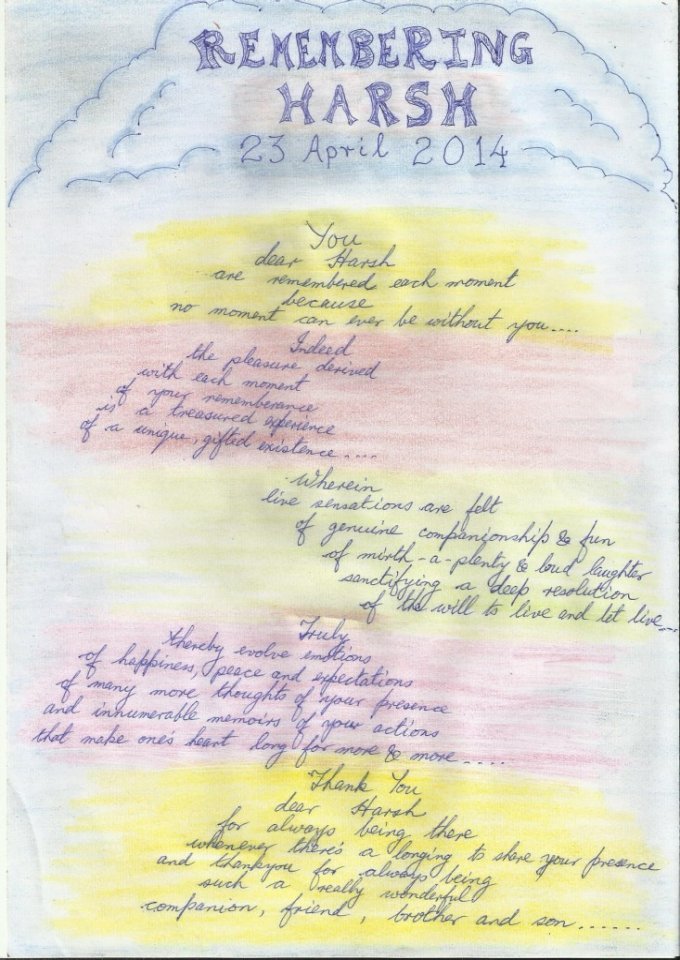 REMEMBERING
HARSH
23 April 2014
You
dear Harsh
are remembered each moment
because
no moment can ever be without you....
Indeed
the pleasure derived
with each moment
of your rememberance
is a treasured experience
of a unique, gifted existence....
Wherein
live sensations are felt
of genuine companionship & fun
of mirth-a-plenty & loud laughter
sanctifying a deep resolution
of the will to live and let live...
Truly
thereby evolve emotions
of happiness, peace and expectations
of many more thoughts of your presence
and innumerable memoirs of your actions
that make one's heart long for more & more.....
Thank You
dear Harsh
for always being there
whenever there's a longing to share your presence
and thankyou for always being
such a really wonderful
companion, friend, brother and son......